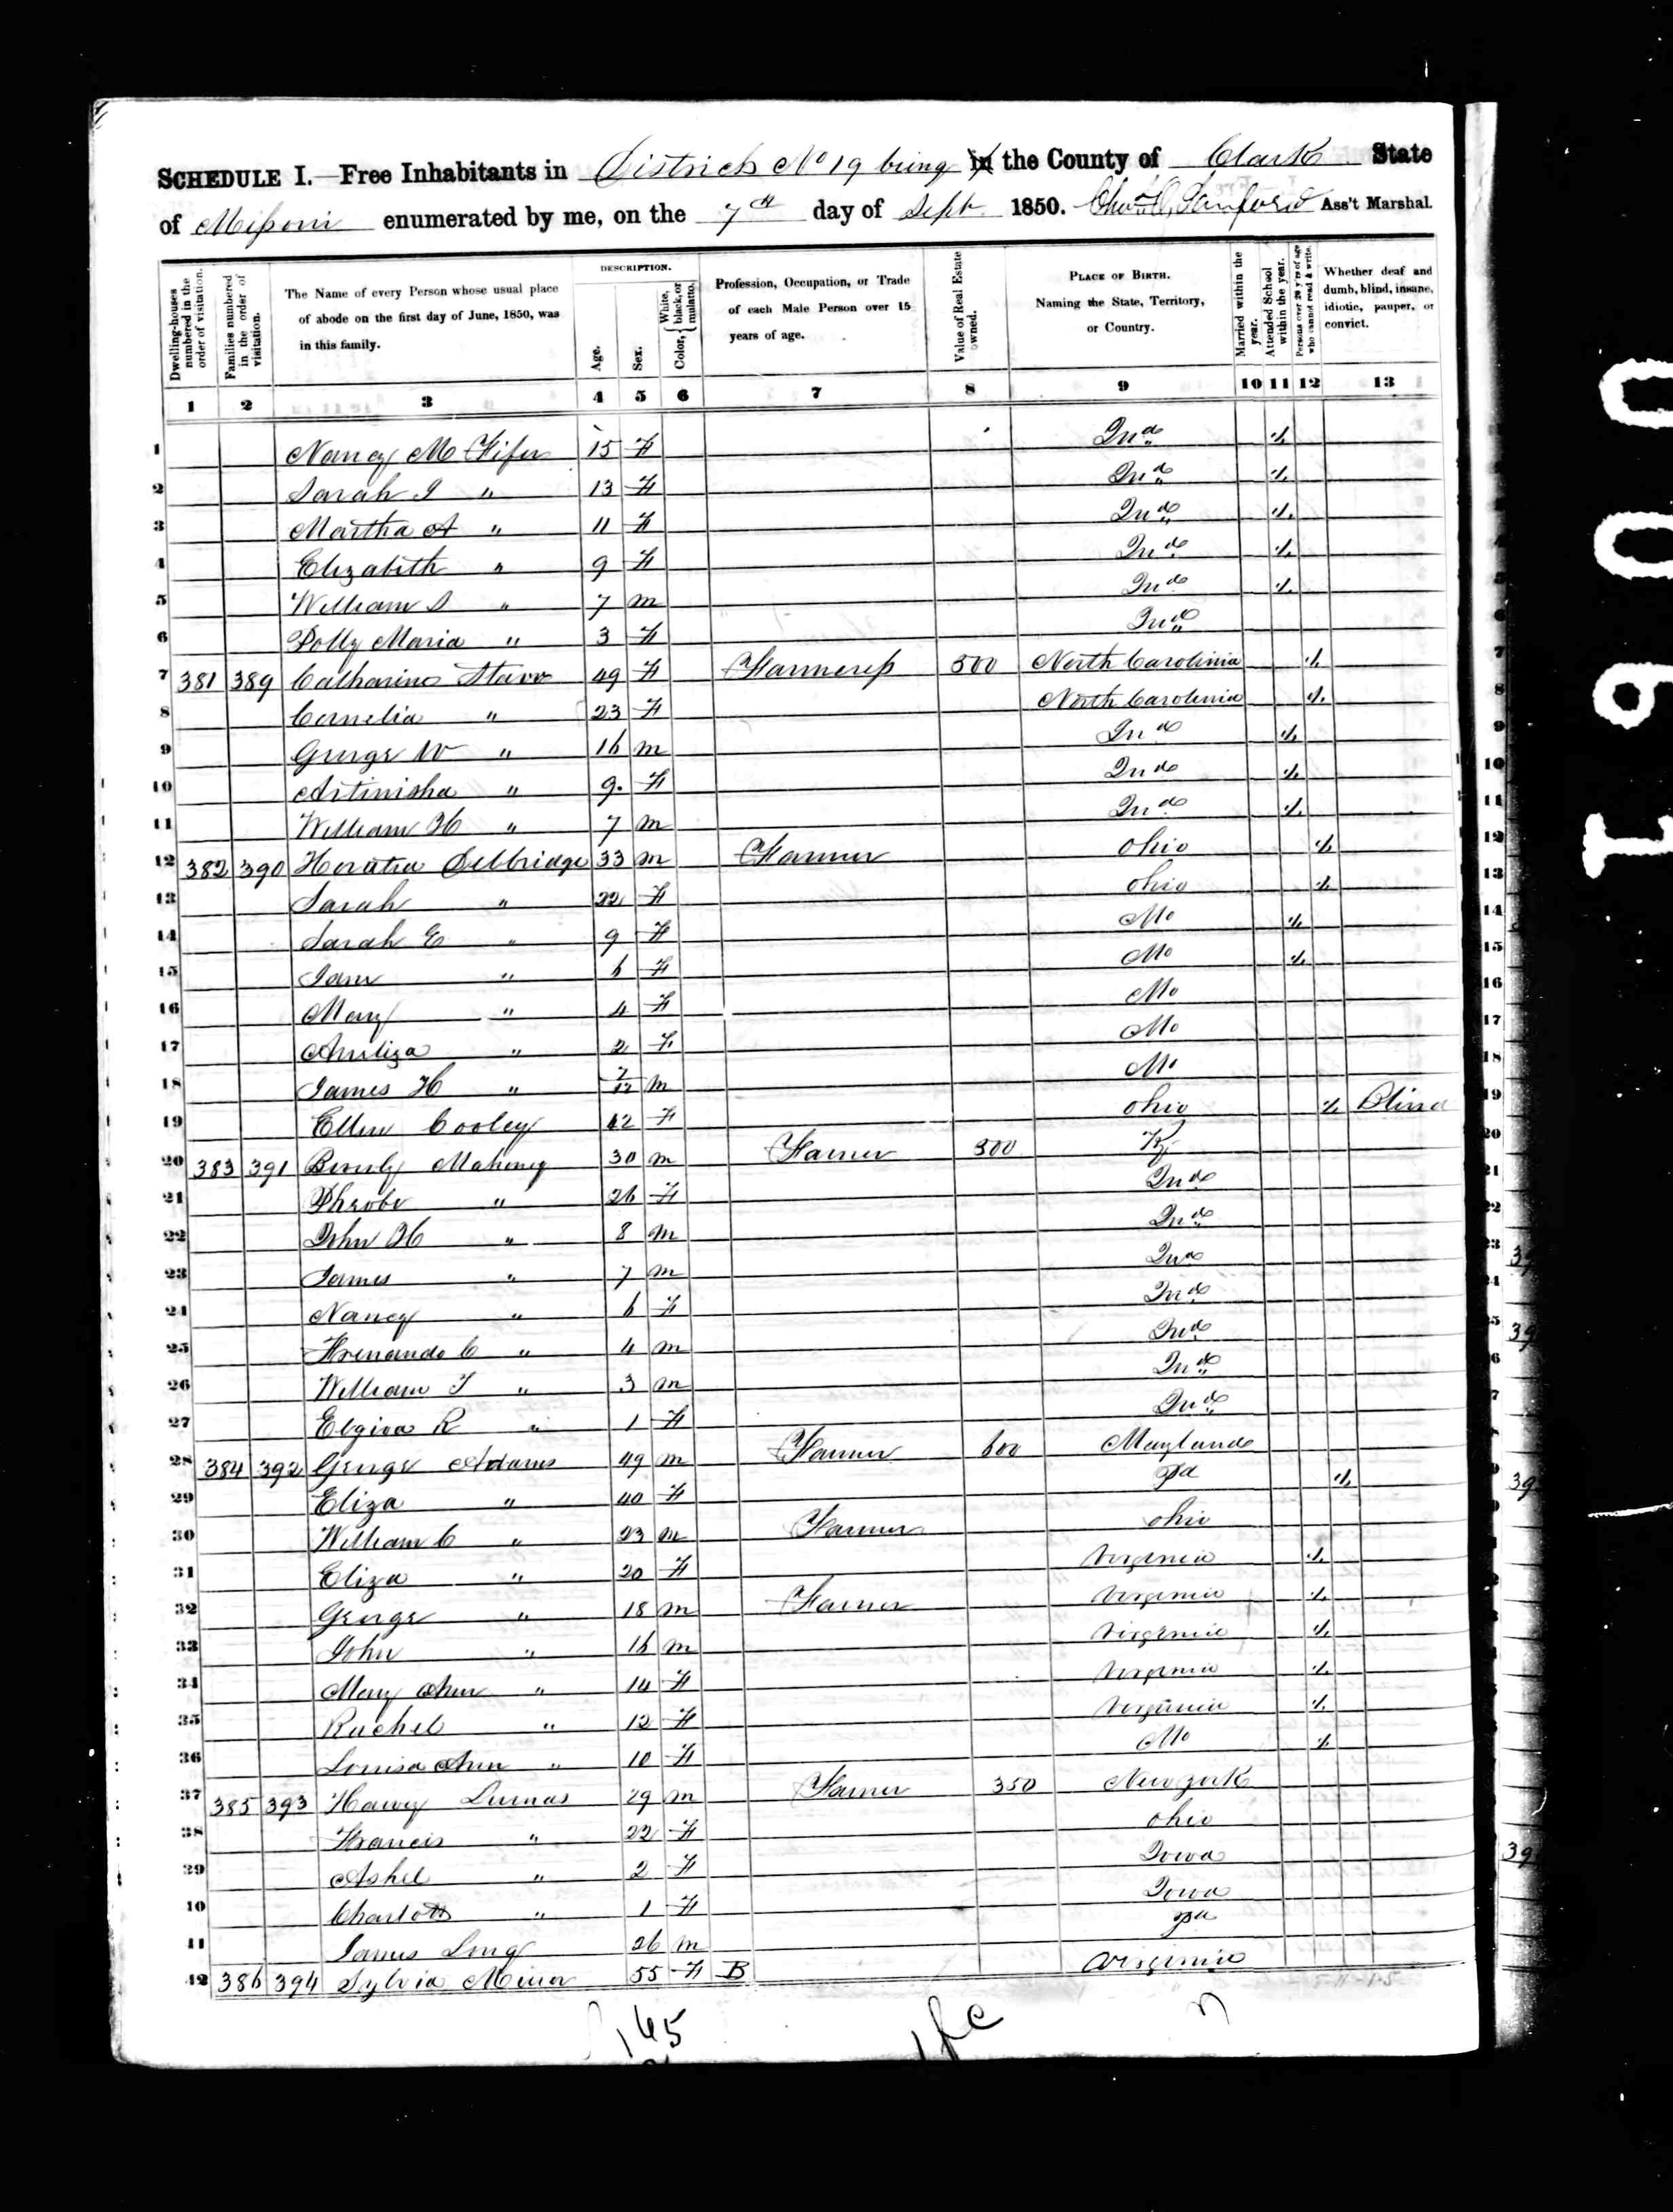 SCHEDULE I.—Free Inhabitants in District No 19 being in the County of Clark State
of Missouri enumerated by me, on the 7th day of Sept 1850. Sanford Ass't Marshal.
Dwelling-houses numbered in the order of visitation.
Families numbered in the order of visitation.
The Name of every Person whose usual place of abode on the first day of June, 1850, was in this family.
DESCRIPTION.
Age.
Sex.
Color, { White, black, or mulatto.
Profession, Occupation, or Trade of each Male Person over 15 years of age.
Value of Real Estate owned.
PLACE OF BIRTH. Naming the State, Territory, or Country.
Married within the year.
Attended School within the year.
Persons over 20 y'rs of age who cannot read & write.
Whether deaf and dumb, blind, insane, idiotic, pauper, or convict.
1 2 3 4 5 6 7 8 9 10 11 12 13
1 Nancy M Fifer 15 F Ind 1
2 Sarah J " 13 F Ind 1
3 Martha A " 11 F Ind 1
4 Elizabeth " 9 F Ind 1
5 William S " 7 m Ind 1
6 Polly Maria " 3 F Ind
7 381 389 Catharine Starr 49 F Farmeress 500 North Carolinia 1
8 Cornelia " 23 F North Carolinia 1
9 George W " 16 m Ind 1
10 Artinisha " 9 F Ind 1
11 William H " 7 m Ind 1
12 382 390 Horatio Selbridge 33 m Farmer Ohio 1
13 Sarah " 22 F Ohio 1
14 Sarah E " 9 F Mo 1
15 Jane " 6 F Mo 1
16 Mary " 4 F Mo
17 Ameliza " 2 F Mo
18 James H " 7/12 m Mo
19 Ellen Cooley 62 F Ohio 1 Blind
20 383 391 Beverly Mahoney 30 m Farmer 300 Ky
21 Pheobe " 26 F Ind
22 John H " 8 m Ind
23 James " 7 m Ind
24 Nancy " 6 F Ind
25 Frenando C " 4 m Ind
26 William T " 3 m Ind
27 Elgiva R " 1 F Ind
28 384 392 George Adams 49 m Farmer 600 Maryland
29 Eliza " 40 F Pa 1
30 William C " 23 m Farmer Ohio
31 Eliza " 20 F Virginia 1
32 George " 18 m Farmer Virginia 1
33 John " 16 m Virginia 1
34 Mary Ann " 14 F Virginia 1
35 Rachel " 12 F Virginia 1
36 Louisa Ann " 10 F Mo 1
37 385 393 Harvey Lumas 29 m Farmer 350 New york
38 Francis " 22 F Ohio
39 Ashel " 2 F Iowa
40 Charlott " 1 F Iowa
41 James Long 26 m Pa
42 386 394 Sylvia Minor 55 F B Virginia
165
1900